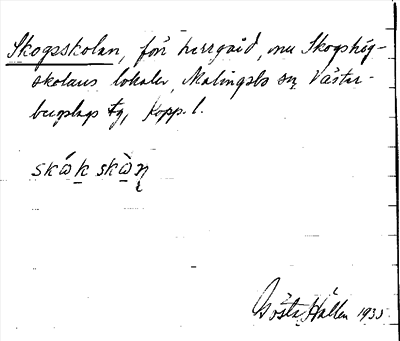 Skogsskolan, förr herrgård, nu Skogshög-
skolans lokaler, Malingsbo sn, Väster-
bergslags tg, Kopp. l.
skώk skὼn̨
Gösta Hållen 1935